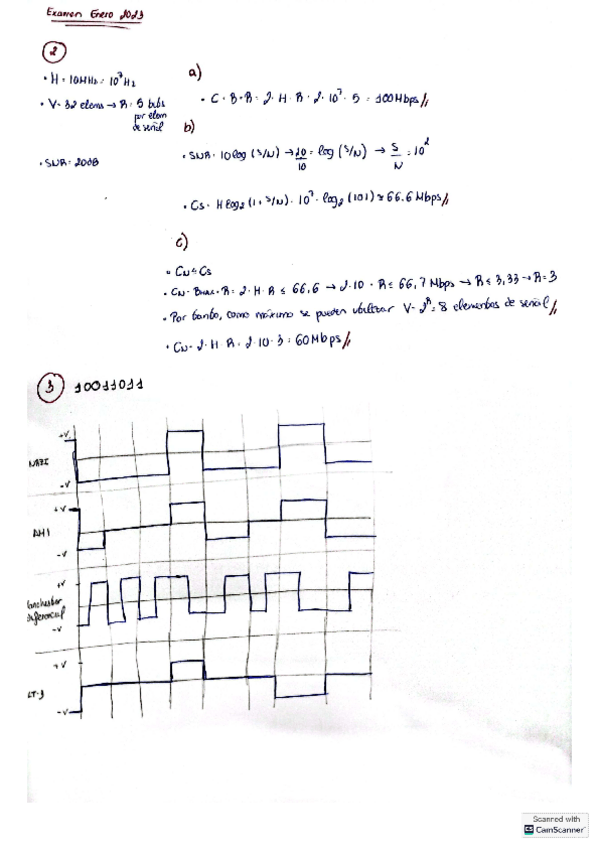 Examen Enero 2023
2
• H = 10MHz = 10⁷ Hz
• V = 32 elems → R = 5 bits
por elem
de señal
• SNR = 20dB
a)
• C = B·R = 2·H·R = 2·10⁷·5 = 100Mbps//
b)
• SNR = 10log (S/N) → 20/10 = log (S/N) → S/N = 10²
• Cs = H log₂ (1 + S/N) = 10⁷ · log₂ (101) ≈ 66.6 Mbps//
c)
• CN ≤ Cs
• CN = Bmax · R = 2·H·R ≤ 66,6 → 2·10·R ≤ 66,7 Mbps → R ≤ 3,33 → R = 3
• Por tanto, como máximo se pueden utilizar V = 2ᴿ = 8 elementos de señal//
• CN = 2·H·R = 2·10·3 = 60Mbps//
3 10011011
+V
NRZI
-V
+V
AMI
-V
+V
Manchester
diferencial
-V
+V
LT-3
-V
Scanned with
CamScanner